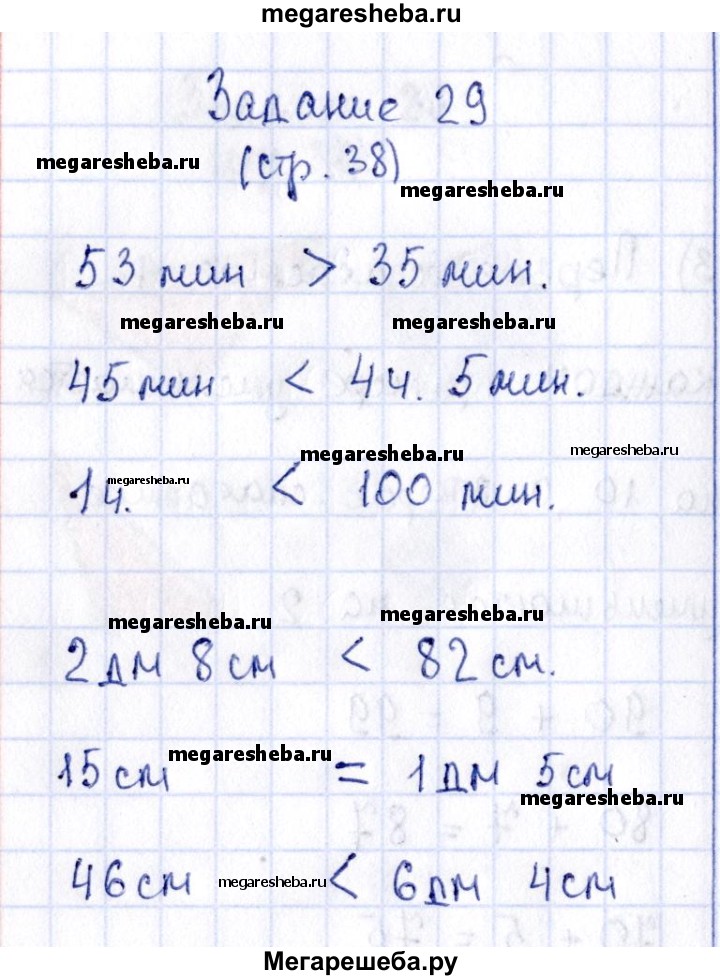 megaresheba.ru
Задание 29
megaresheba.ru
(стр. 38)
megaresheba.ru
53 мин > 35 мин.
megaresheba.ru megaresheba.ru
45 мин < 4ч. 5 мин.
megaresheba.ru megaresheba.ru
1ч. megaresheba.ru < 100 мин.
megaresheba.ru megaresheba.ru
2 дм 8 см < 82 см.
15 см megaresheba.ru = 1 дм 5 см
megaresheba.ru
46 см megaresheba.ru < 6 дм 4 см
Мегарешеба.ру